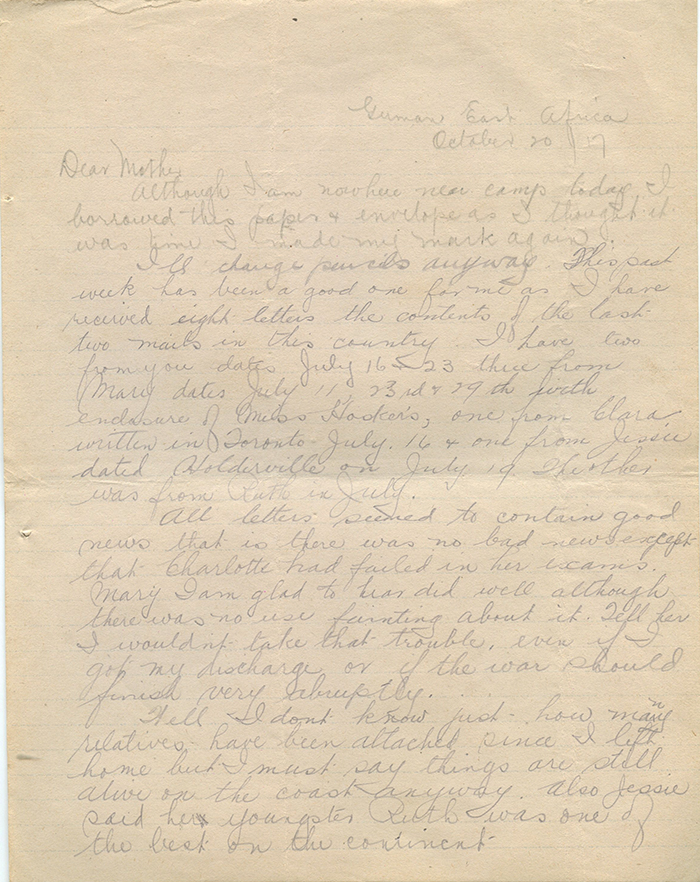 German East Africa
October 20/17
Dear Mother
Although I am nowhere near camp today I
borrowed this paper & envelope as I thought it
was time I made my mark again.
I'll change pencils anyway. This past
week has been a good one for me as I have
received eight letters the contents of the last
two mails in this country. I have two
from you dates July 16 & 23 three from
Mary dates July 11, 23rd & 29th with
enclosure of Miss Hosker's, one from Clara
written in Toronto July. 16 & one from Jessie
dated Holderville on July 19 The other
was from Ruth in July.
All letters seemed to contain good
news that is there was no bad news except
that Charlotte had failed in her exams.
Mary I am glad to hear did well although
there was no use fainting about it. Tell her
I wouldnt take that trouble, even if I
got my discharge or if the war should
finish very abruptly.
Well I dont know just how many
relatives have been attached since I left
home but I must say things are still
alive on the coast anyway. Also Jessie
said her youngster Ruth was one of
the best on the continent